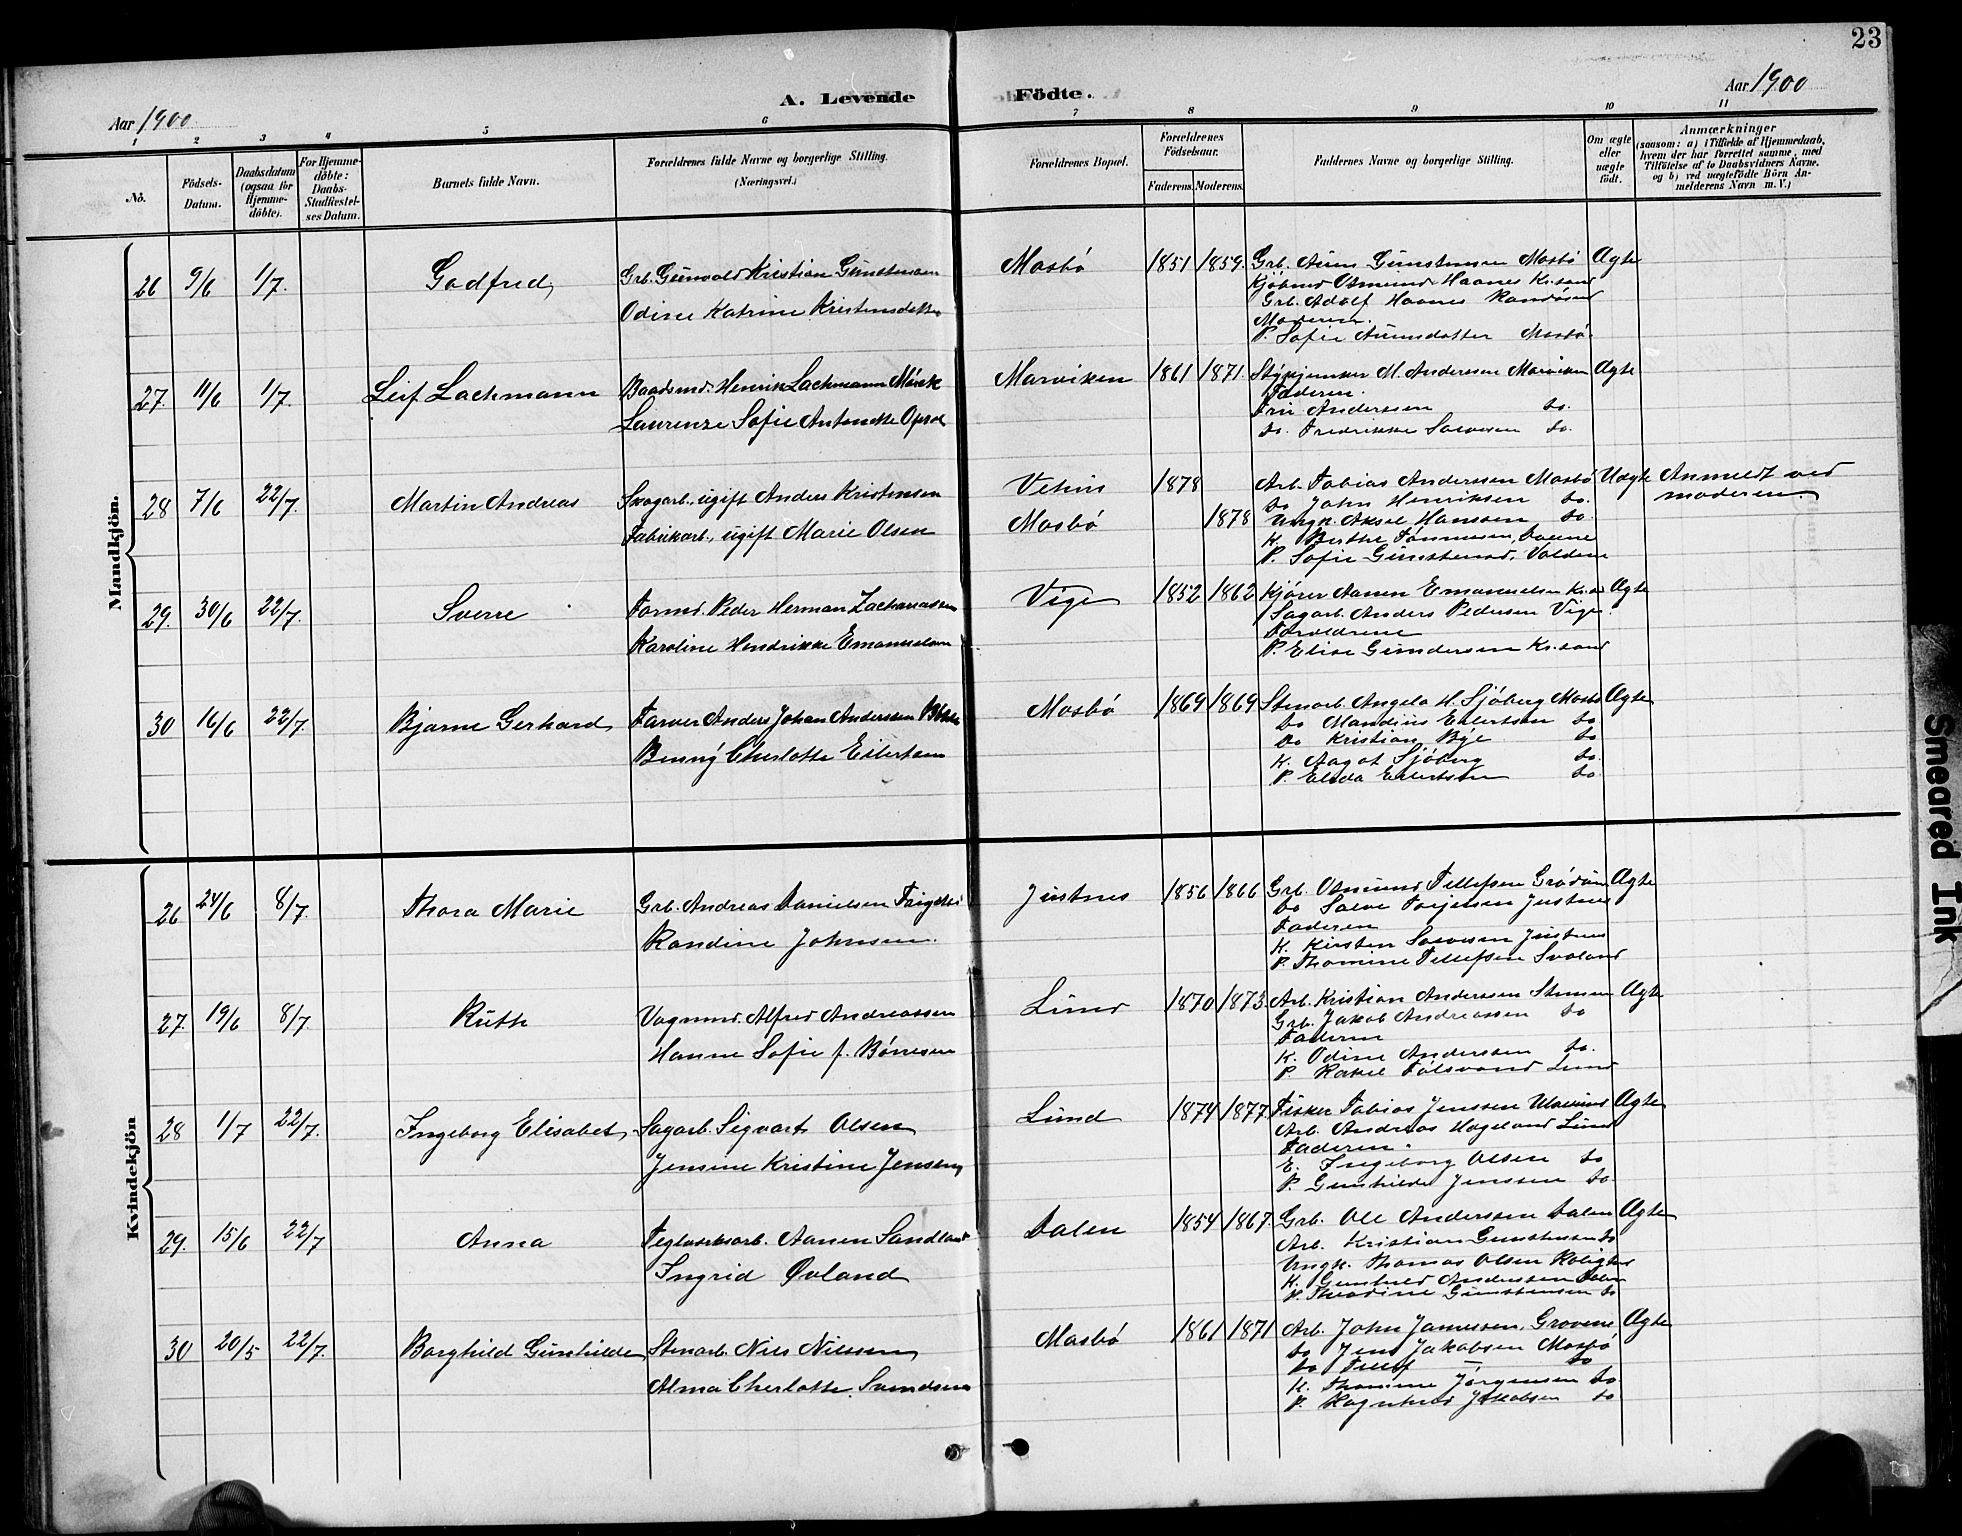 23
A. Levende Födte.
Aar 1900
Aar 1900
1 2 3 4 5 6 7 8 9 10 11
No.
Födsels-Datum.
Daabsdatum (ogsaa for Hjemmedöbte).
For Hjemmedöbte: Daabs-Stadfæstelses Datum.
Barnets fulde Navn.
Forældrenes fulde Navne og borgerlige Stilling. (Næringsvei.)
Forældrenes Bopæl.
Forældrenes Födselsaar.
Faderens. Moderens.
Faddernes Navne og borgerlige Stilling.
Om ægte eller uægte födt.
Anmærkninger
(saasom: a) i Tilfælde af Hjemmedaab, hvem der har forrettet samme, med Tilföielse af to Daabsvidners Navne. og b) ved uægtefödte Börn Anmelderens Navn m. V.)
Mandkjön.
26 9/6 1/7. Godfred,
Grb. Gunvald Kristian Gunstensen
Odine Katrine Kristensdatter
Mosbö 1851 1859.
Grb. Aunu Gunstensen Mosbö Ægte
Osmund Haanes Kr.sand
Grb. Adolf Haanes Randösund
Moderen.
P. Sofie Mosbö.
27. 11/6 1/7. Leif Lachmann
Baadsmd. Henrik Lachmann Mörck
Laurenze Sofie
Marviken 1861 1871.
M. Andersen Marviken Ægte
Faderen.
Fru Anderssen do.
do. Fredrikke do.
28 7/6 22/7. Martin Andreas
Skogarb., ugift Anders Kristensen
Fabrikarb., ugift Marie Olsen
1878
Mosbö 1878
Arb. Tobias Anderssen Mosbö Uægte Anmeldt ved
do John Henriksen do. moderen
Ungk. Aksel Hanssen do.
K. Berthe
P. Sofie
29. 30/6 22/7. Sverre
Formd. Peder Herman Zachariassen
Karoline Hendrikke Emanuelsen
Vige 1852 1862
Kjører Aanen Emanuelsen Kr.sd Ægte
Sagarb. Anders Pedersen Vige.
Forældrene
P. Elise Gundersen Kr.sand
30 16/6 22/7. Bjarne Gerhard
Farver Anders Johan Anderssen
Benny Cherlotte Eilertsen
Mosbö 1869 1869
Stenarb. Angelo H. Sjöberg Mosbö Ægte
do Mandius Eilertsen do
do Kristian Bye do
K. Aagot Sjöberg do.
P. Elida Eilertssen do.
Kvindekjön
26 24/6 8/7. Thora Marie
Grb. Andreas Danielsen
Randine Johnsen.
Justnes 1856 1866
Grb. Osmund Tellefsen Ægte
do Salve Torjensen Justnes
Faderen
K. Kirsten Salvesen Justnes
P. Thomine Tellefsen
27. 19/6 8/7. Ruth
Vognmd. Alfred Andreassen
Hanne Sofie f. Börresen
Lund 1870 1873.
Arb. Kristian Anderssen Ægte
Grb. Jakob Andreassen do
Faderen
K. Odine Anderssen do.
P. Rakel Lund
28 1/7 22/7. Ingeborg Elisabet,
Sagarb. Sigvart Olsen
Jensine Kristine Jenssen
Lund 1874 1877.
Fisker Tobias Jenssen Ægte
Arb. Andreas Hageland Lund
Faderen.
E. Ingeborg Olsen do
P. Gunhilde Jenssen do.
29. 15/6 22/7 Anna
Teglverksarb. Aanen Sandland
Ingrid Øvland
Dalen 1854 1867.
Grb. Ole Anderssen Dalen Ægte
Arb. Kristian Gunstensen do
Ungk. Thomas Olsen
K. Gunhild Anderssen Dalen
P. Theodine Gunstensen do
30 20/5 22/7. Borghild Gunhilde
Stenarb. Nils Nilssen
Alma Cherlotte Svendsen
Mosbö 1861 1871
Arb. John Ægte
do Jens Jakobsen Mosbö
do Tellef — do
K. Thomine Jörgensen do
P. Ragnhild Jakobsen do
Smeared Ink